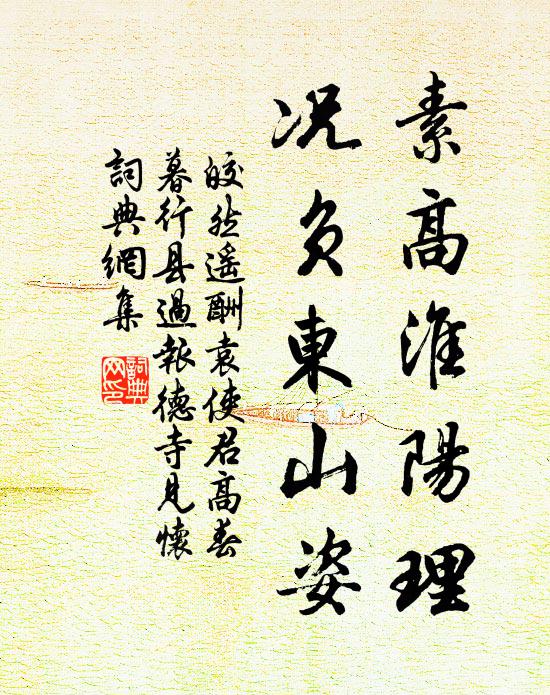 素高淮陽理
况負東山姿
皎然遥酬袁使君高春
暮行县過報德寺見懷
詞典網集
詞典
网印